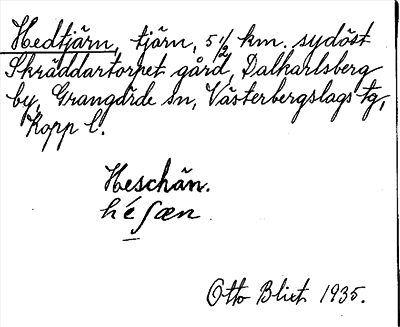 Hedtjärn, tjärn, 5 1/2 km. sydöst
Skräddartorpet gård, Dalkarlsberg
by, Grangärde sn, Västerbergslags tg,
Kopp l.
Heschän.
hé̱ʃæn
Otto Blixt 1935.